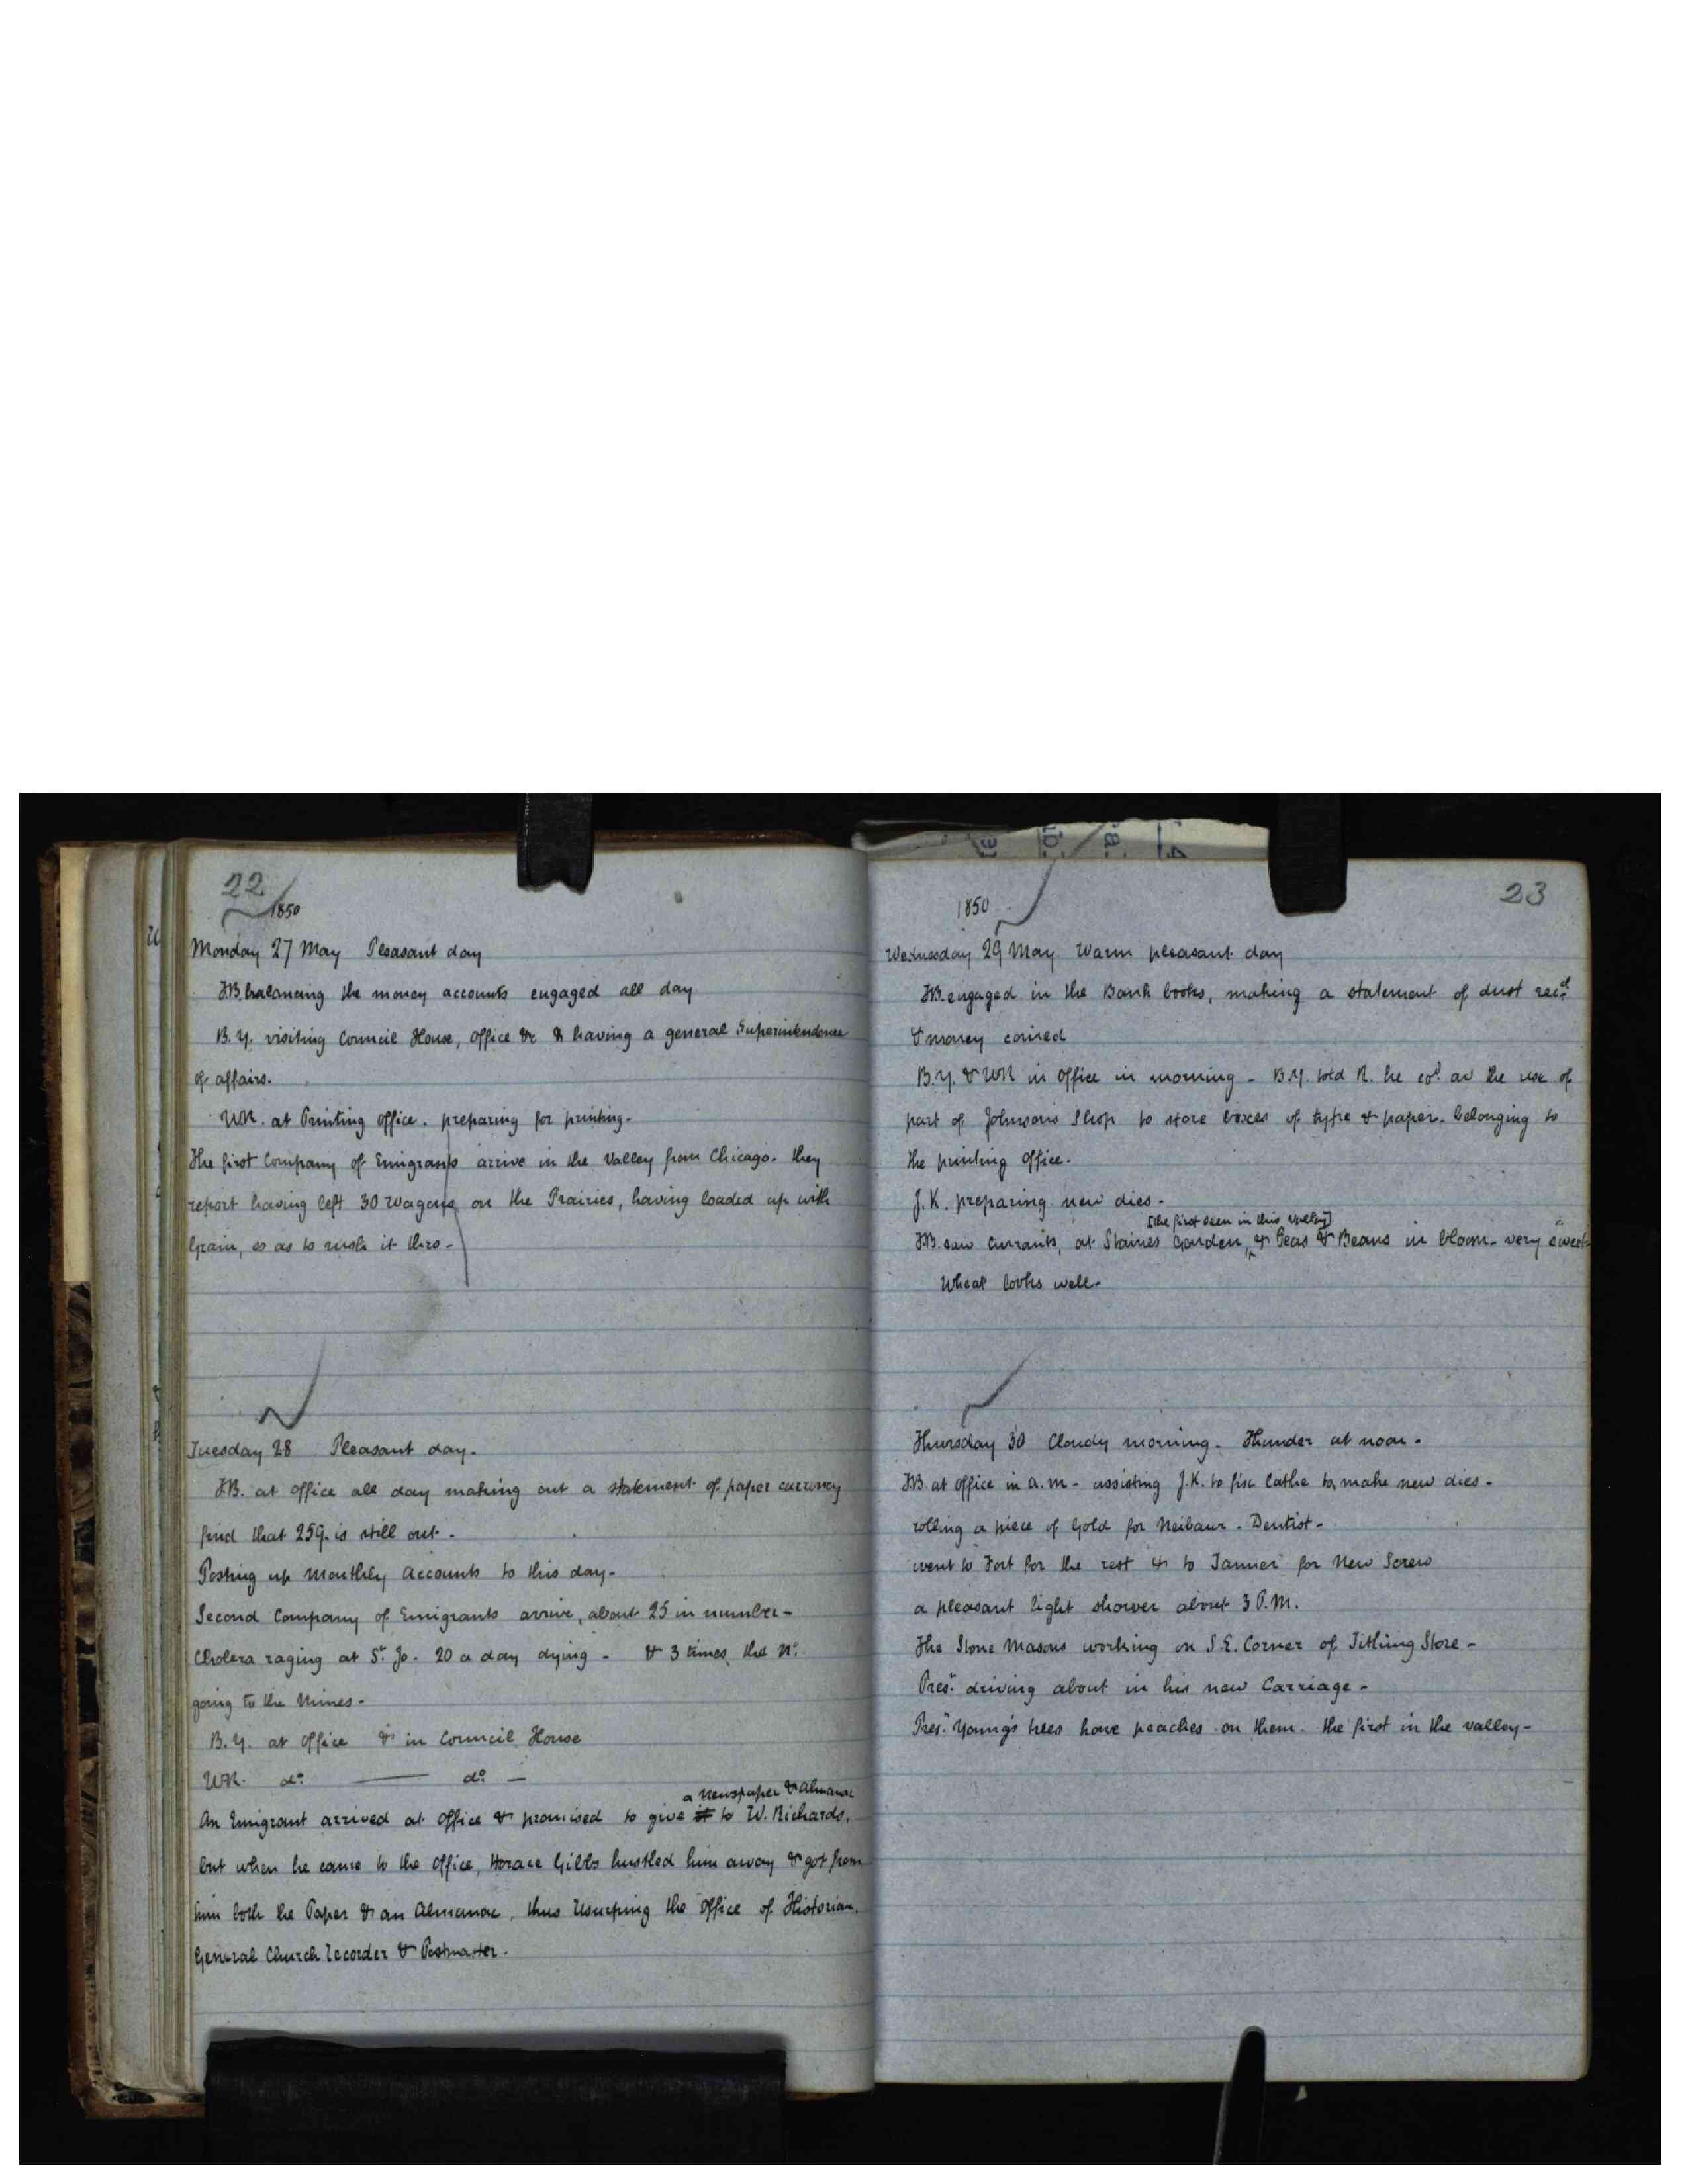 22
1850
Monday 27 May Pleasant day
TB. balancing the money accounts engaged all day
B.Y. visiting Council House, office &c & having a general Superintendence
of affairs.
WR. at Printing office. preparing for printing.
The first Company of Emigrants arrive in the Valley from Chicago. they
report having left 30 Wagons on the Prairies, having loaded up with
Grain, so as to rush it thro-
Tuesday 28 Pleasant day.
TB. at office all day making out a statement of paper currency
find that 259. is still out-
Posting up Monthly Accounts to this day-
Second Company of Emigrants arrive, about 25 in number-
Cholera raging at St. Jo. 20 a day dying - & 3 times the No.
going to the Mines-
B.Y. at office & in Council House
WR. do. —— do. —
a Newspaper & Almanac
An Emigrant arrived at office & promised to give it to W. Richards,
but when he came to the office, Horace Gibbs hustled him away & got from
him both the Paper & an Almanac, thus Usurping the Office of Historian,
General Church Recorder & Postmaster.
23
1850
Wednesday 29 May Warm pleasant day
TB. engaged in the Bank books, making a statement of dust recd.
& money coined
B.Y. & WR in office in morning - B.Y. told R. he cod. av the use of
part of Johnsons Shop to store boxes of type & paper. belonging to
the printing office.
J.K. preparing new dies-
[the first seen in this valley]
TB. saw Currants, at Staines Garden, & Peas & Beans in bloom- very sweet-
Wheat looks well.
Thursday 30 Cloudy morning. Thunder at noon.
TB. at office in a.m - assisting J.K. to fix lathe to make new dies-
rolling a piece of Gold for Neibaur. Dentist-
went to Fort for the rest & to Tanner for New Screw
a pleasant light shower about 3 P.M.
The Stone Masons working on S.E. Corner of Tithing Store-
Prest. driving about in his new Carriage-
Prest. Young's trees have peaches on them. the first in the valley-